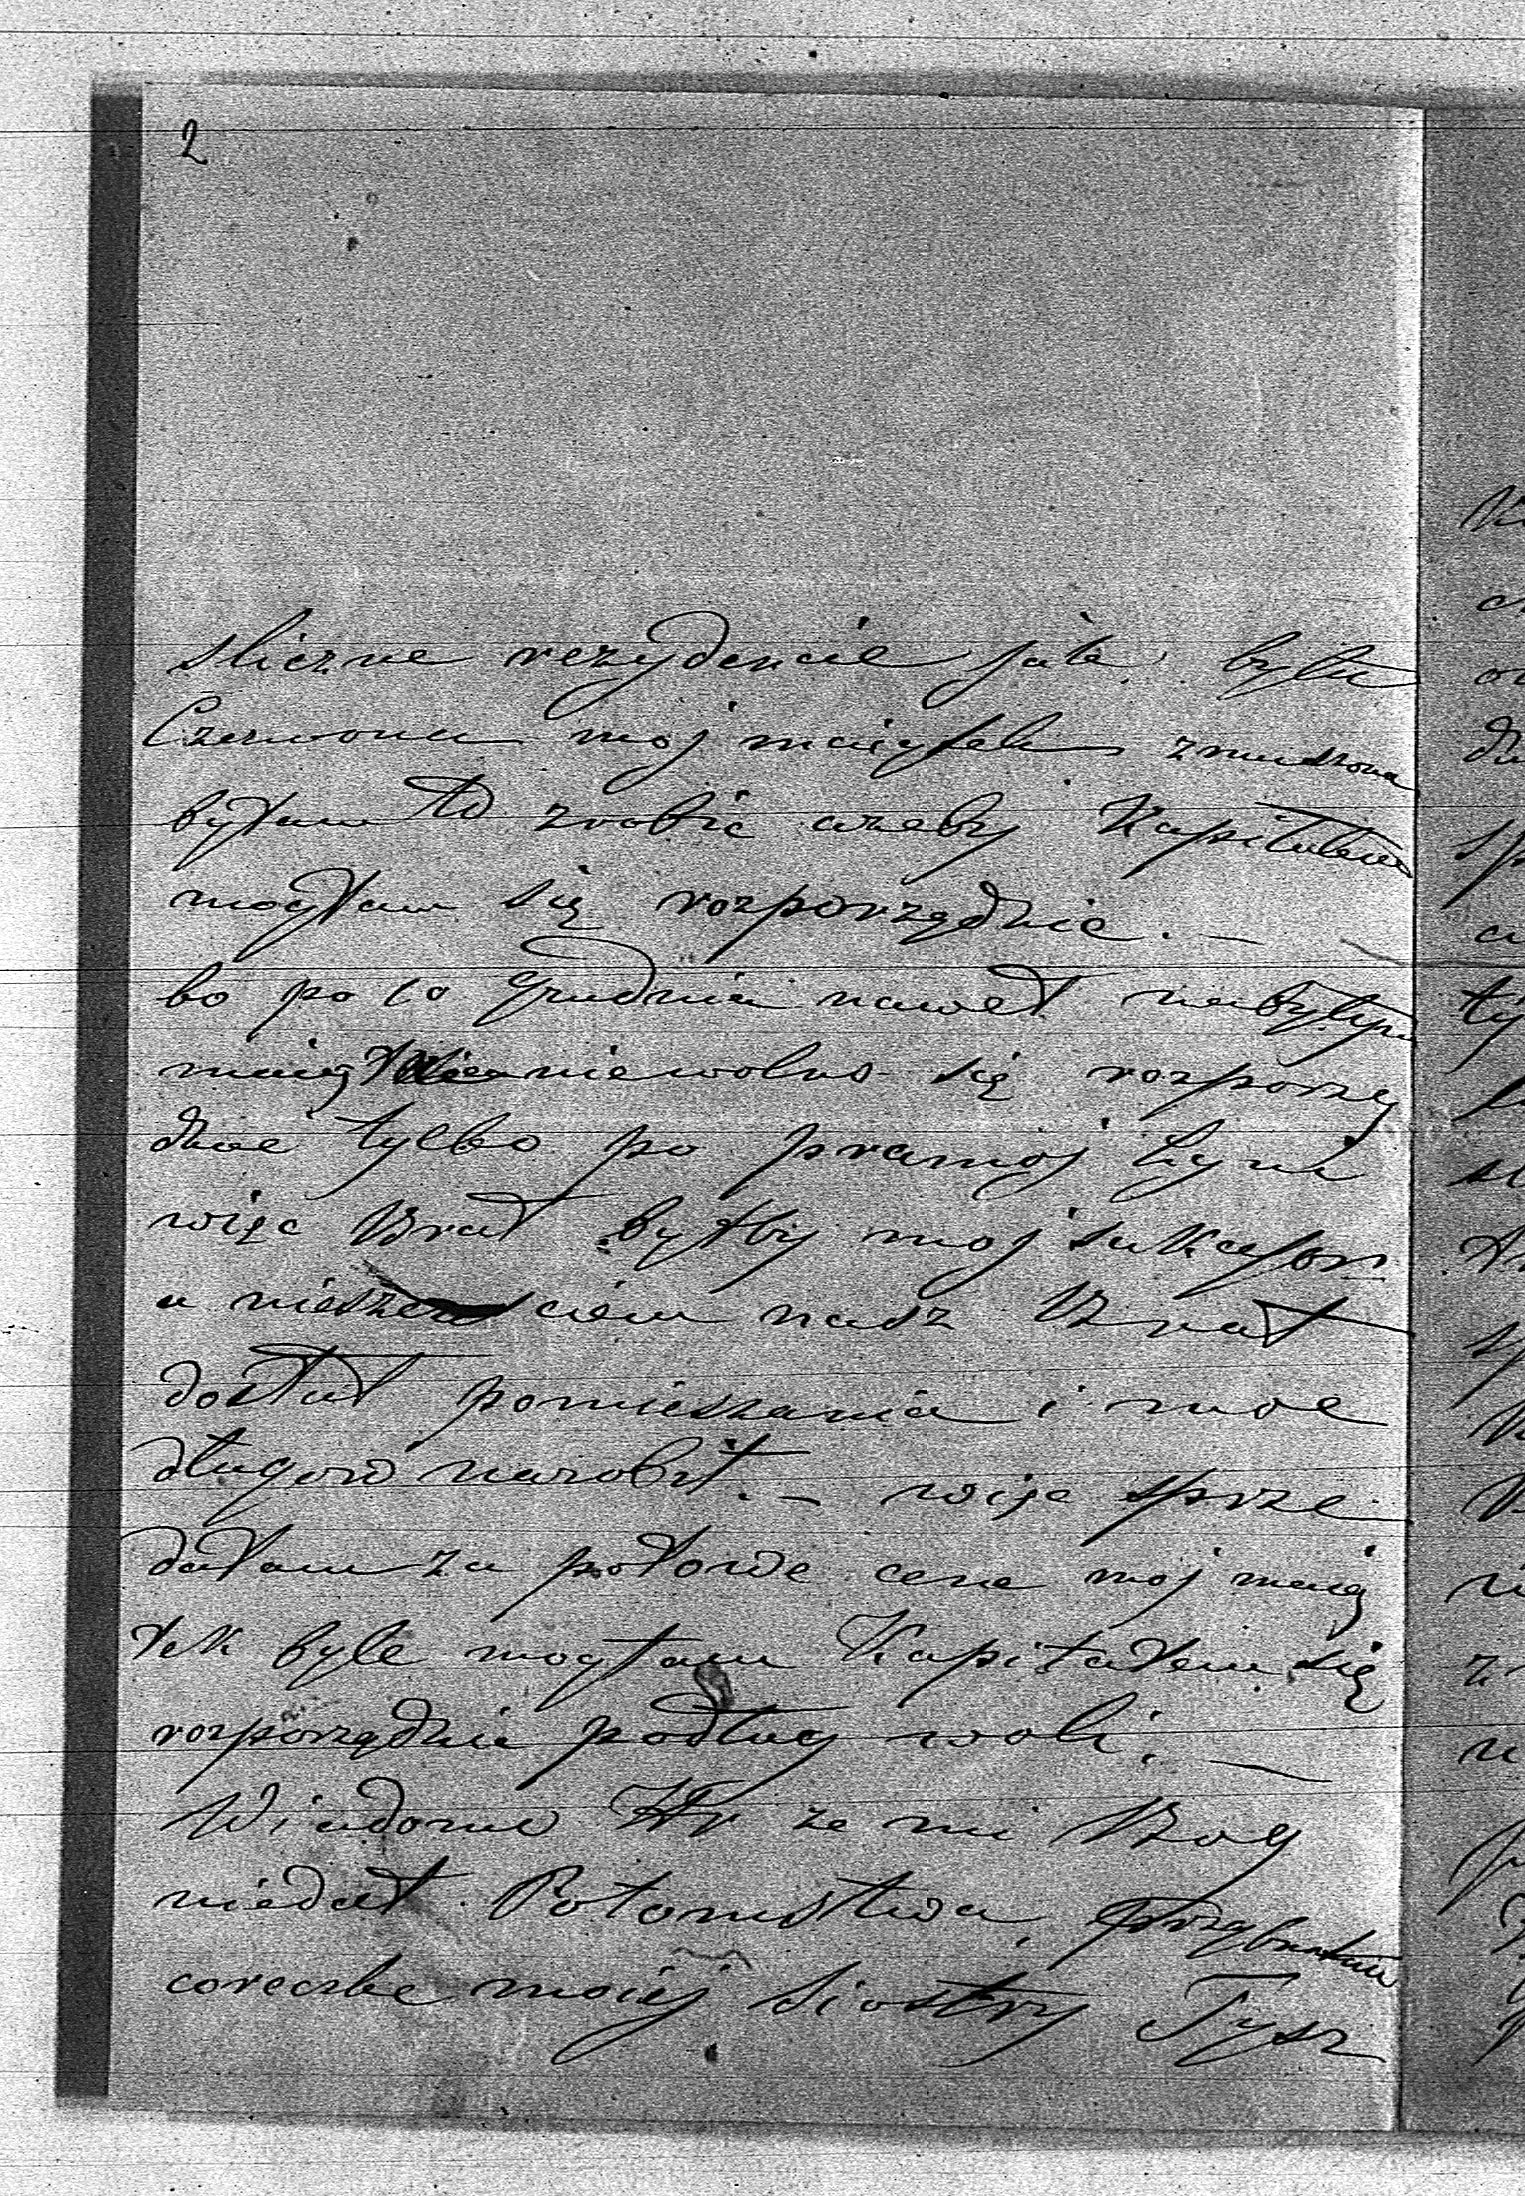 2
sliczne rezydencie jaka była
Czerwona moj majątek zmuszona
byłam to zrobić ażeby Kapitałem
mogłam się rozporządzić. —
bo po 10 Grudnia nawet
niewolno się rozporzą
dzać tylko po pramoj Lynii
więc Brat byłby moj sukcesor
a nieszczęsciem nasz Brat
dostał pomieszania i moc
długow narobił. — więc sprze
dałam za połowe cene moj mają
tek byle mogłam Kapitałem się
rozporządzić podług woli. —
Wiadomo że mi Bog
niedał Potomstwa, przybrałam
coreczke moiej Siostry Tysz